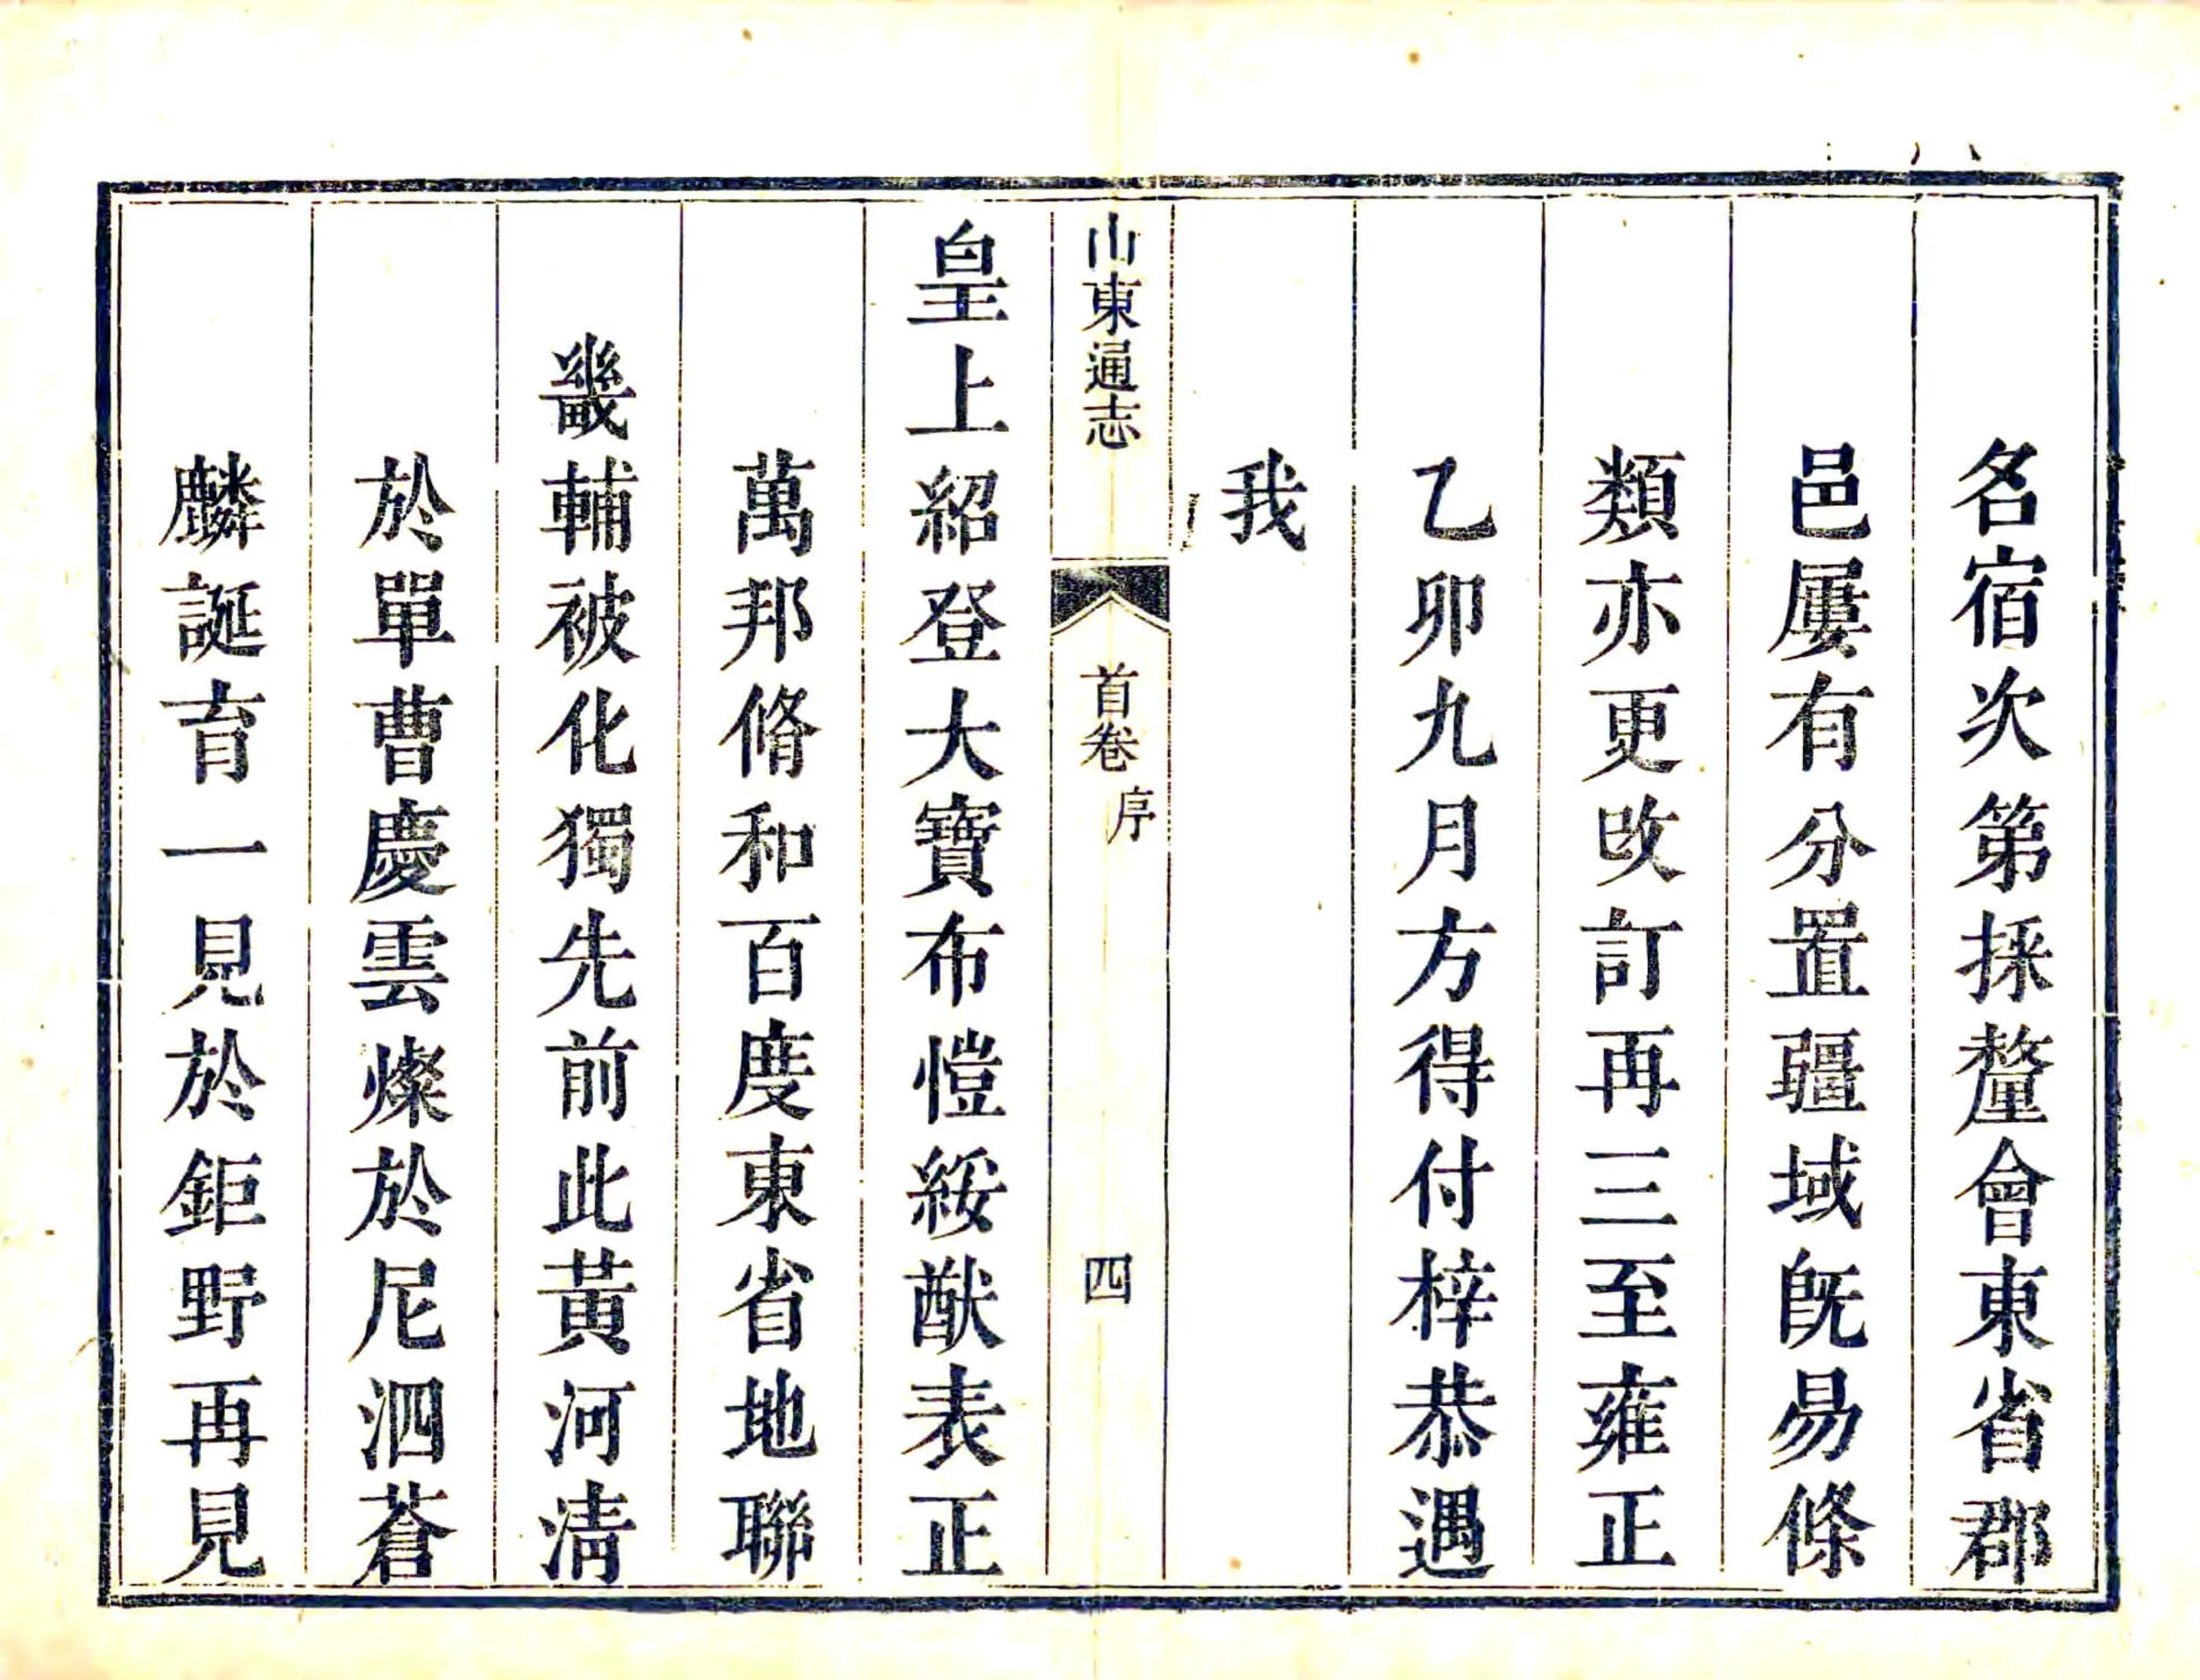 名宿次第採釐會東省郡
邑屢有分置疆域旣易條
類亦更改訂再三至雍正
乙卯九月方得付梓恭遇
我
山東通志
首卷
序
四
皇上紹登大寶布愷綏猷表正
萬邦脩和百度東省地聯
畿輔被化獨先前此黃河淸
於單曹慶雲燦於尼泗蒼
麟誕育一見於鉅野再見